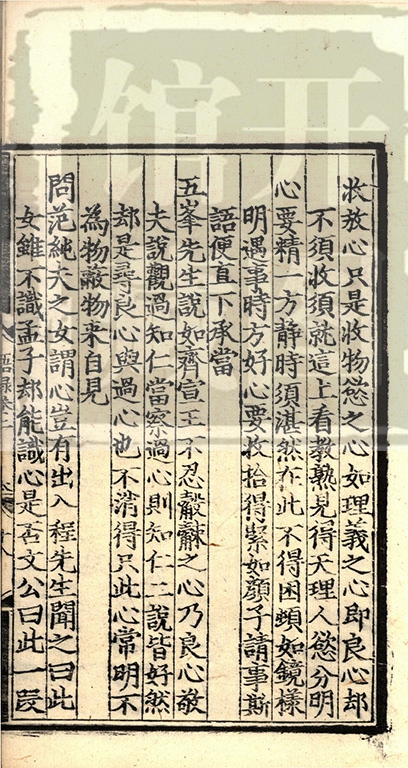 收放心只是收物慾之心如理義之心即良心却
不須收須就這上看教熟見得天理人慾分明
心要精一方靜時須湛然在此不得困頓如鏡樣
明遇事時方好心要收拾得緊如顏子請事斯
語便直下承當
五峯先生說如齊宣王不忍觳觫之心乃良心敬
夫說觀過知仁當察過心則知仁二說皆好然
却是尋良心與過心也不消得只此心常明不
為物蔽物来自見
問范純夫之女謂心豈有出入程先生聞之曰此
女雖不識孟子却能識心是否文公曰此一段